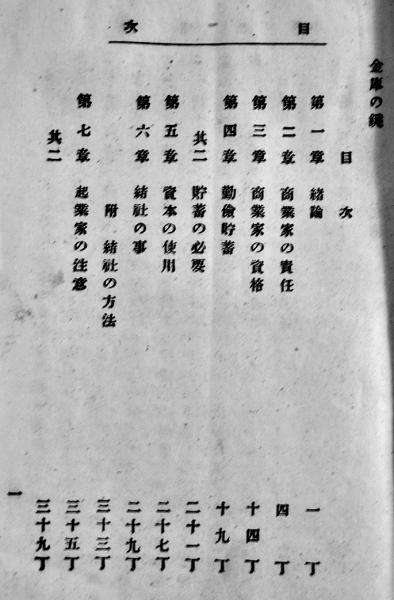 目次
金庫の鍵
目次
第一章 緒論 一丁
第二章 商業家の責任 四丁
第三章 商業家の資格 十四丁
第四章 勤儉貯蓄 十九丁
其二 貯蓄の必要 二十一丁
第五章 資本の使用 二十七丁
第六章 結社の事 二十九丁
附 結社の方法 三十三丁
第七章 起業家の注意 三十五丁
其二 三十九丁
一